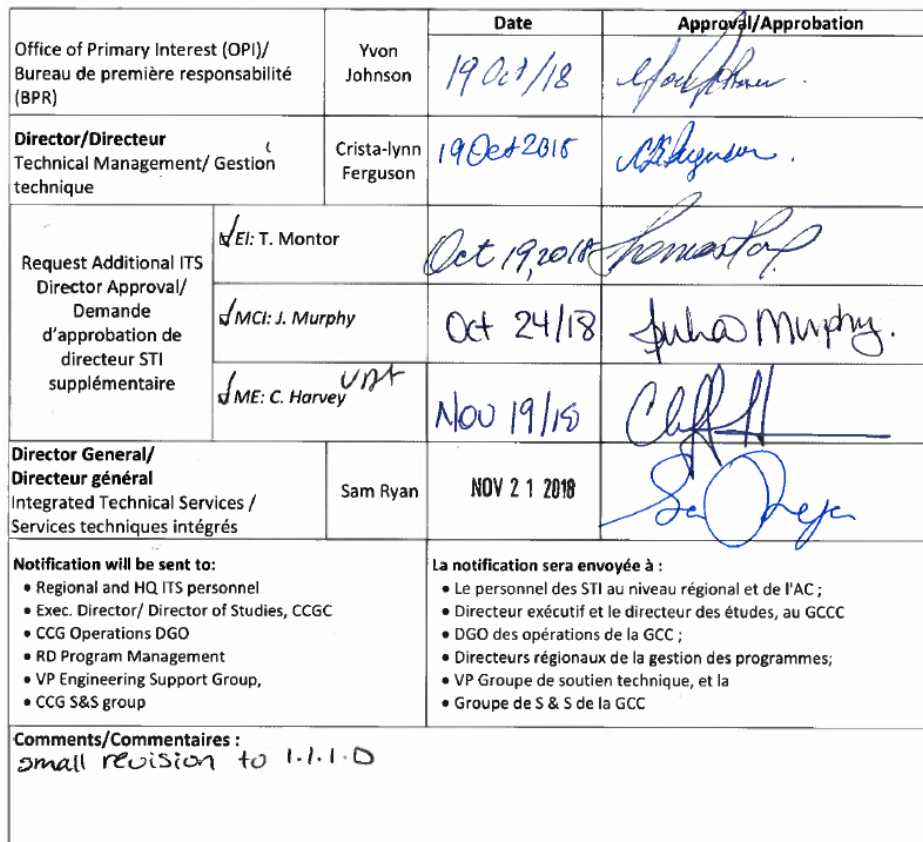 Date Approval/Approbation
Office of Primary Interest (OPI)/
Bureau de première responsabilité
(BPR)
Yvon
Johnson
19 Oct/18
Director/Directeur
Technical Management/ Gestion
technique
Crista-lynn
Ferguson
19 Oct 2018
Request Additional ITS
Director Approval/
Demande
d'approbation de
directeur STI
supplémentaire
EI: T. Montor
Oct 19, 2018
MCI: J. Murphy
Oct 24/18
Julia Murphy.
ME: C. Harvey
Nov 19/18
Director General/
Directeur général
Integrated Technical Services /
Services techniques intégrés
Sam Ryan
NOV 21 2018
Notification will be sent to:
• Regional and HQ ITS personnel
• Exec. Director/ Director of Studies, CCGC
• CCG Operations DGO
• RD Program Management
• VP Engineering Support Group,
• CCG S&S group
La notification sera envoyée à :
• Le personnel des STI au niveau régional et de l'AC ;
• Directeur exécutif et le directeur des études, au GCCC
• DGO des opérations de la GCC ;
• Directeurs régionaux de la gestion des programmes;
• VP Groupe de soutien technique, et la
• Groupe de S & S de la GCC
Comments/Commentaires :
small revision to 1.1.1.D